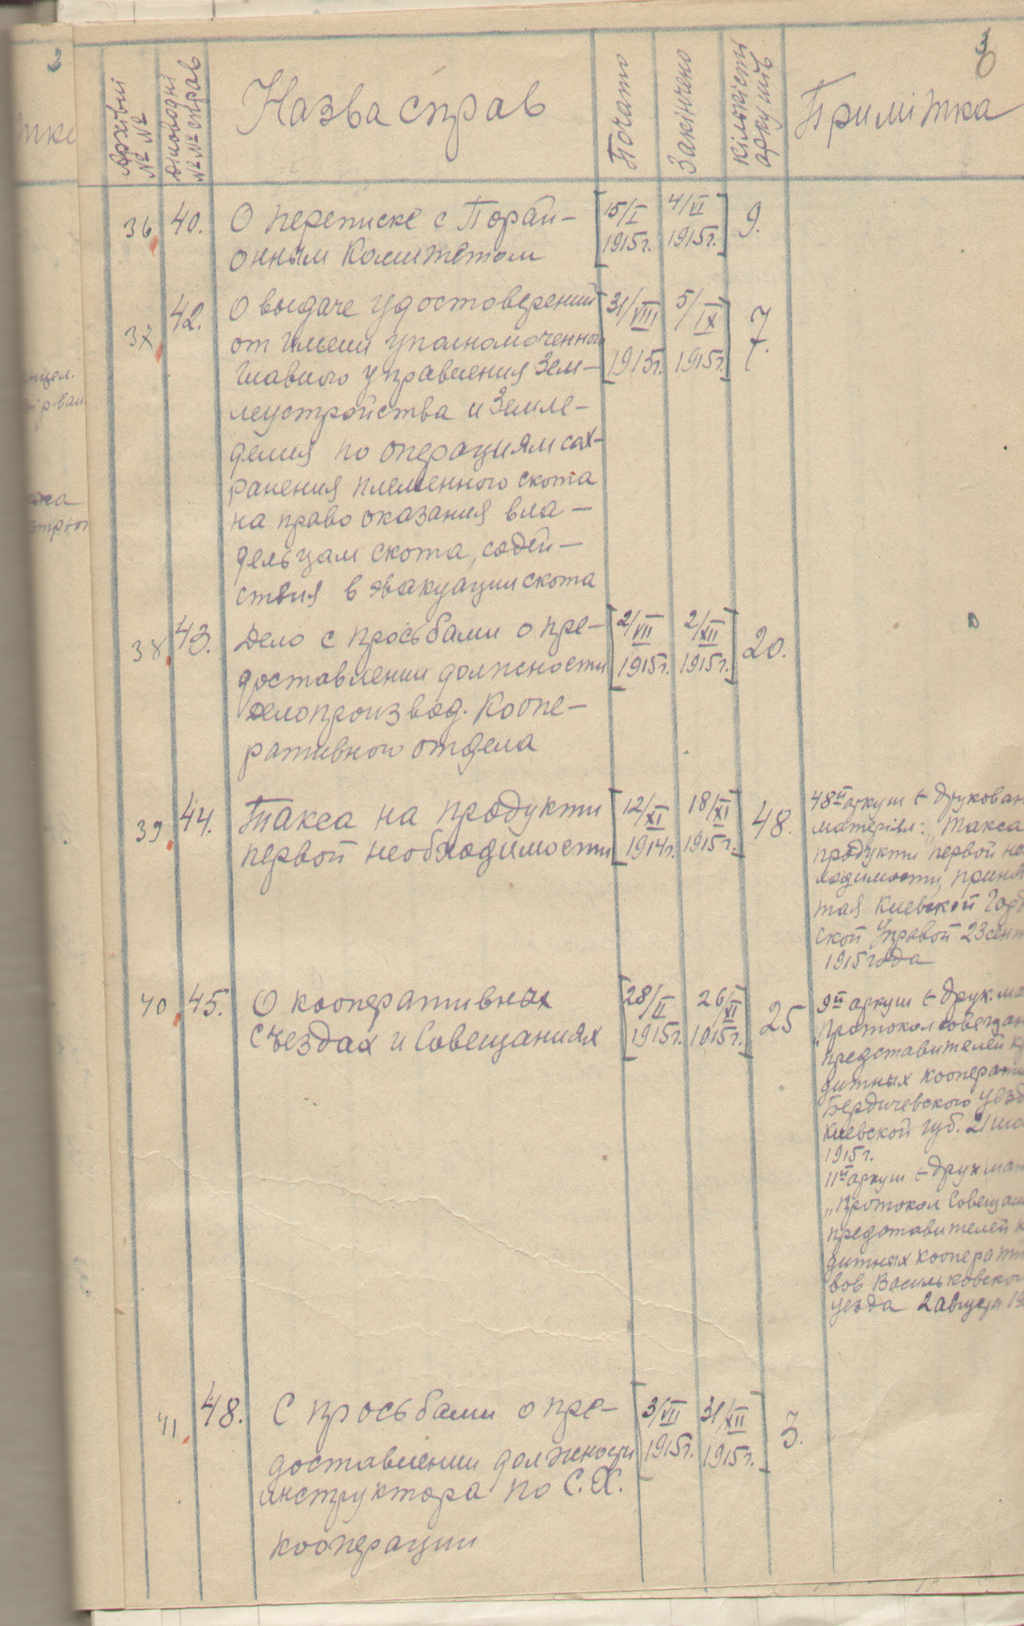 3
Архівні №№
діловодні №№ справ
Назва справ
Почато
Закінчено
кількість аркушів
Примітка
36. 40. О переписке с Порай-
онным Комитетом
[15/I 1915г. 4/VI 1915г.] 9.
37. 42. О выдаче удостоверений
от имени уполномоченного
Главного управления Зем-
леустройства и Земле-
делия по операциям сох-
ранения племенного скота
на право оказания вла-
дельцам скота, содей-
ствия в эвакуации скота
[31/VIII 1915г. 5/IX 1915г.] 7.
38. 43. Дело с просьбами о пре-
доставлении должности
делопроизвод. Коопе-
ративного отдела
[2/VII 1915г. 2/XII 1915г.] 20.
39. 44. Такса на продукти
первой необходимости
[12/XI 1914г. 18/XI 1915г.] 48.
48й аркуш є друкован
матеріял: „Такса
продукти первой не
ходимости, приня
тая Киевской Горо
ской Управой 23 сент
1915 года
40. 45. О кооперативных
съездах и Совещаниях
[28/II 1915г. 26/XI 1915г.] 25
9й аркуш є друк. ма
„Протокол совещан
представителей к
дитных кооперати
Бердичевского уезд
Киевской губ. 21
1915г.
11й аркуш є друк мат
„Протокол Совеща
представителей к
дитных кооперати
вов Васильковско
уезда 2 августа 19
41. 48. С просьбами о пре-
доставлении должности
инструктора по С.Х.
кооперации
[3/VII 1915г. 31/XII 1915г.] 3.